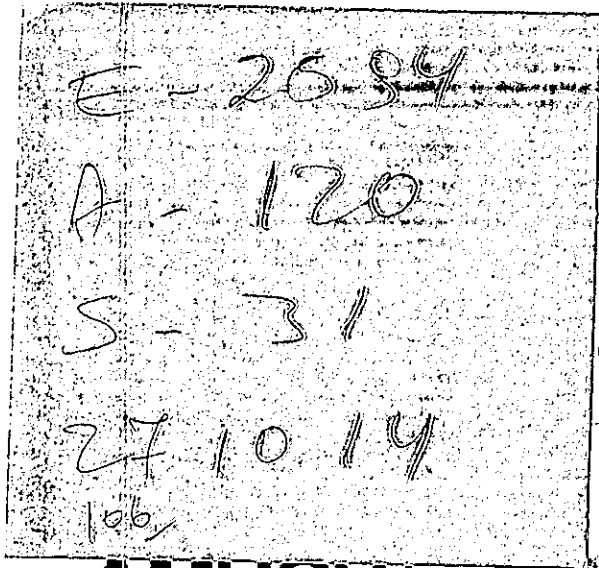 E - 2684
A - 120
S - 31
27 10 14
106